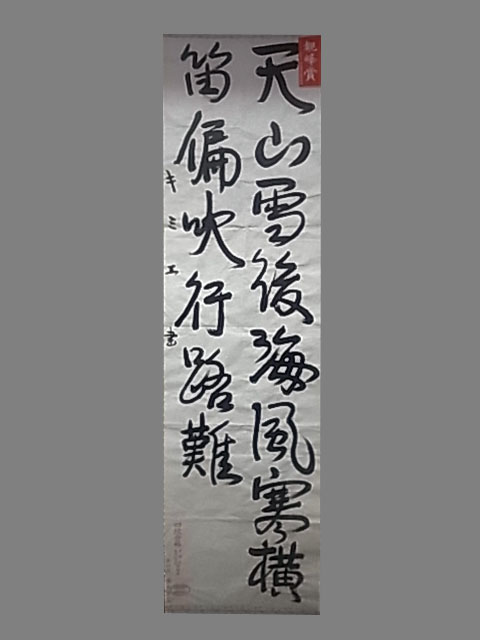 天山雪後海風寒横
笛偏吹行路難
キミエ書
親峰賞